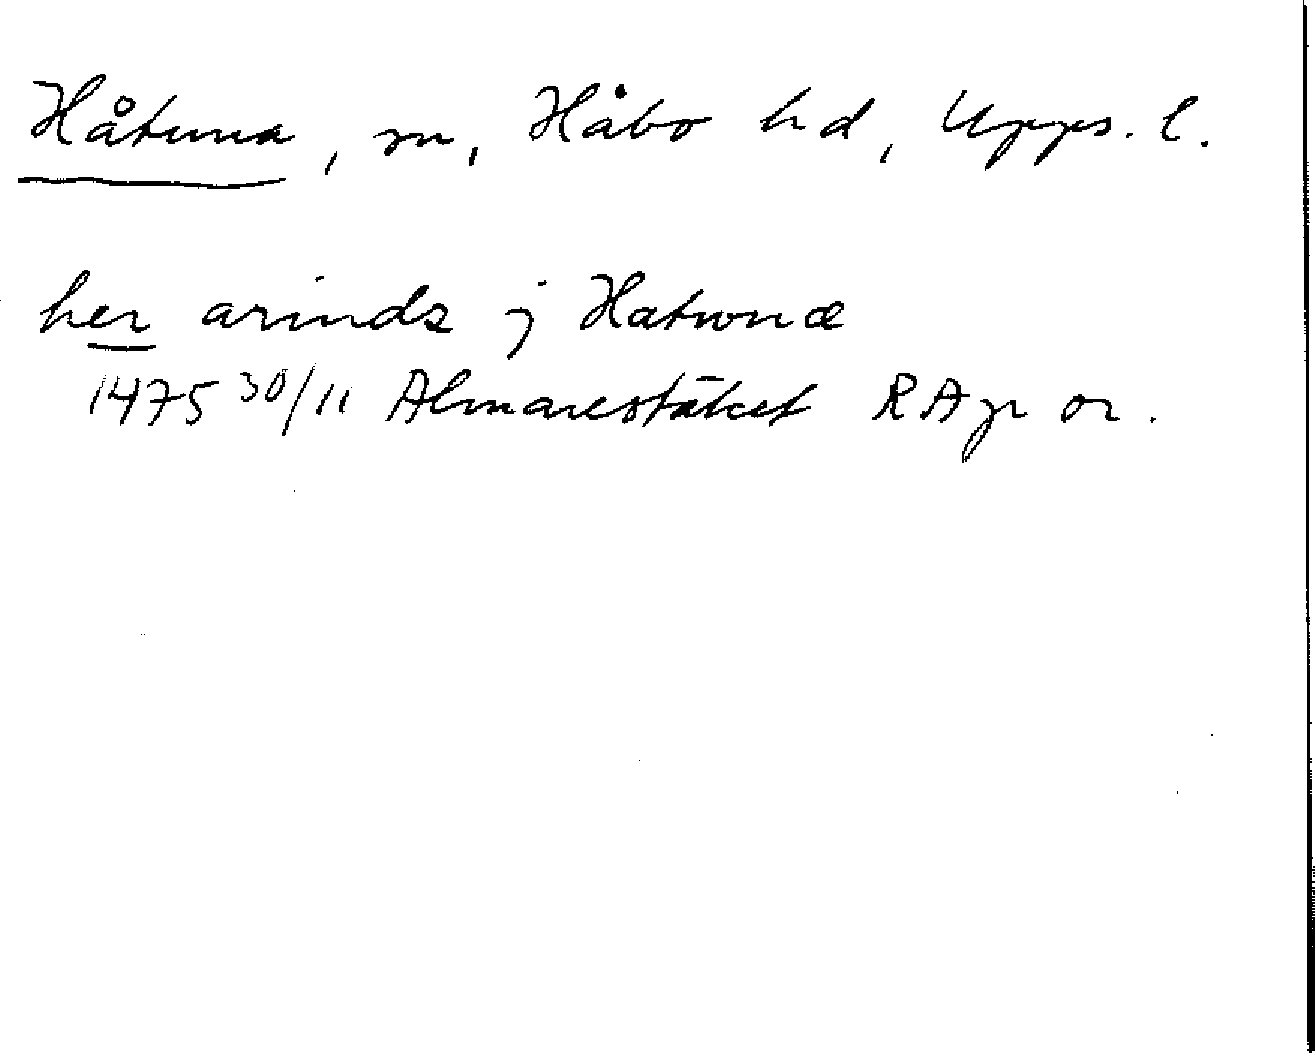 Håtuna, sn, Håbo hd, Upps. l.
her arinds j Hatwnæ
1475 30/11 Almarestäket RAp or.